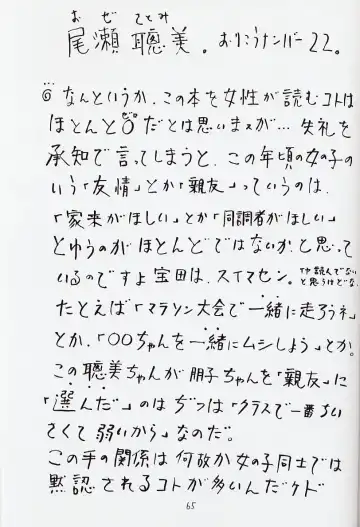 おぜ さとみ
尾瀬 聰美。おりこうナンバー22。
◎なんというか、この本を女性が読むコトは
ほとんど0だとは思いますが…失礼を
ゼロ
承知で言ってしまうと、この年頃の女の子の
いう「友情」とか「親友」っていうのは、
「家来がほしい」とか「同調者がほしい」
とゆうのがほとんどではないかと思って
いるのですよ宝田は、スイマセン。
たとえば「マラソン大会で一緒に走ろうネ」
とか、「〇〇ちゃんを一緒にムシしよう」とか。
この聰美ちゃんが朋子ちゃんを「親友」に
「選んだ」のはぢつは「クラスで一番ちい
さくて弱いから」なのだ。
この手の関係は何故か女の子同士では
黙認されるコトが多いんだケド
65